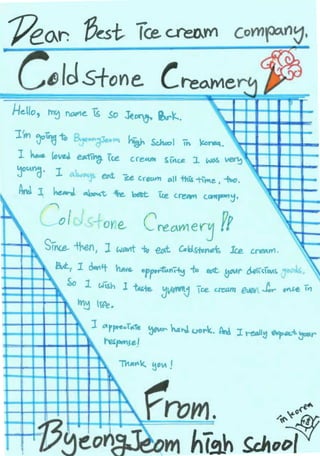 Dear. Best Ice cream company.
Coldstone Creamery
Hello, my name is So Jeong, Park.
I'm going to ByeongJeom high School in korea.
I have loved eating Ice cream since I was very
young. I always eat Ice cream all this time, too.
And I heard about the best Ice cream company,
Coldstone Creamery!!
Since then, I want to eat Coldstone's Ice cream.
But, I don't have opportunity to eat your delicious goods.
So I wish I taste yummy ice cream even for once in
my life.
I appreciate your hard work. And I really expect your
response!
Thank you!
From.
in korea
ByeongJeom high school